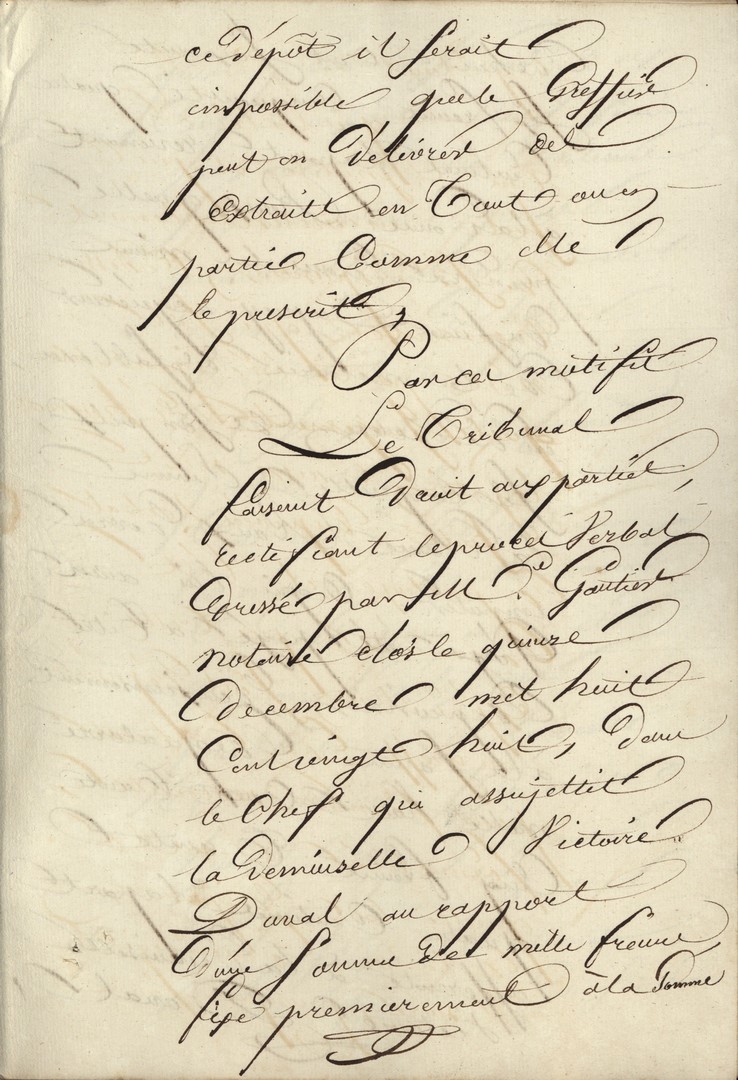 ce Dépôt il serait
impossible que le Greffier
peut en Délivrer des
Extraits en Tout ou en
partie Comme elle
le prescrit,
Par ces motifs
Le Tribunal
faisant Droit aux parties,
rectifiant le procès Verbal
Dressé par Me Gautier
notaire clos le quinze
Décembre mil huit
Cent vingt huit, Dans
le Chef qui assujettit
la Demoiselle Victoire
Duval au rapport
D'une Somme De mille francs,
fixe premierement à la Somme